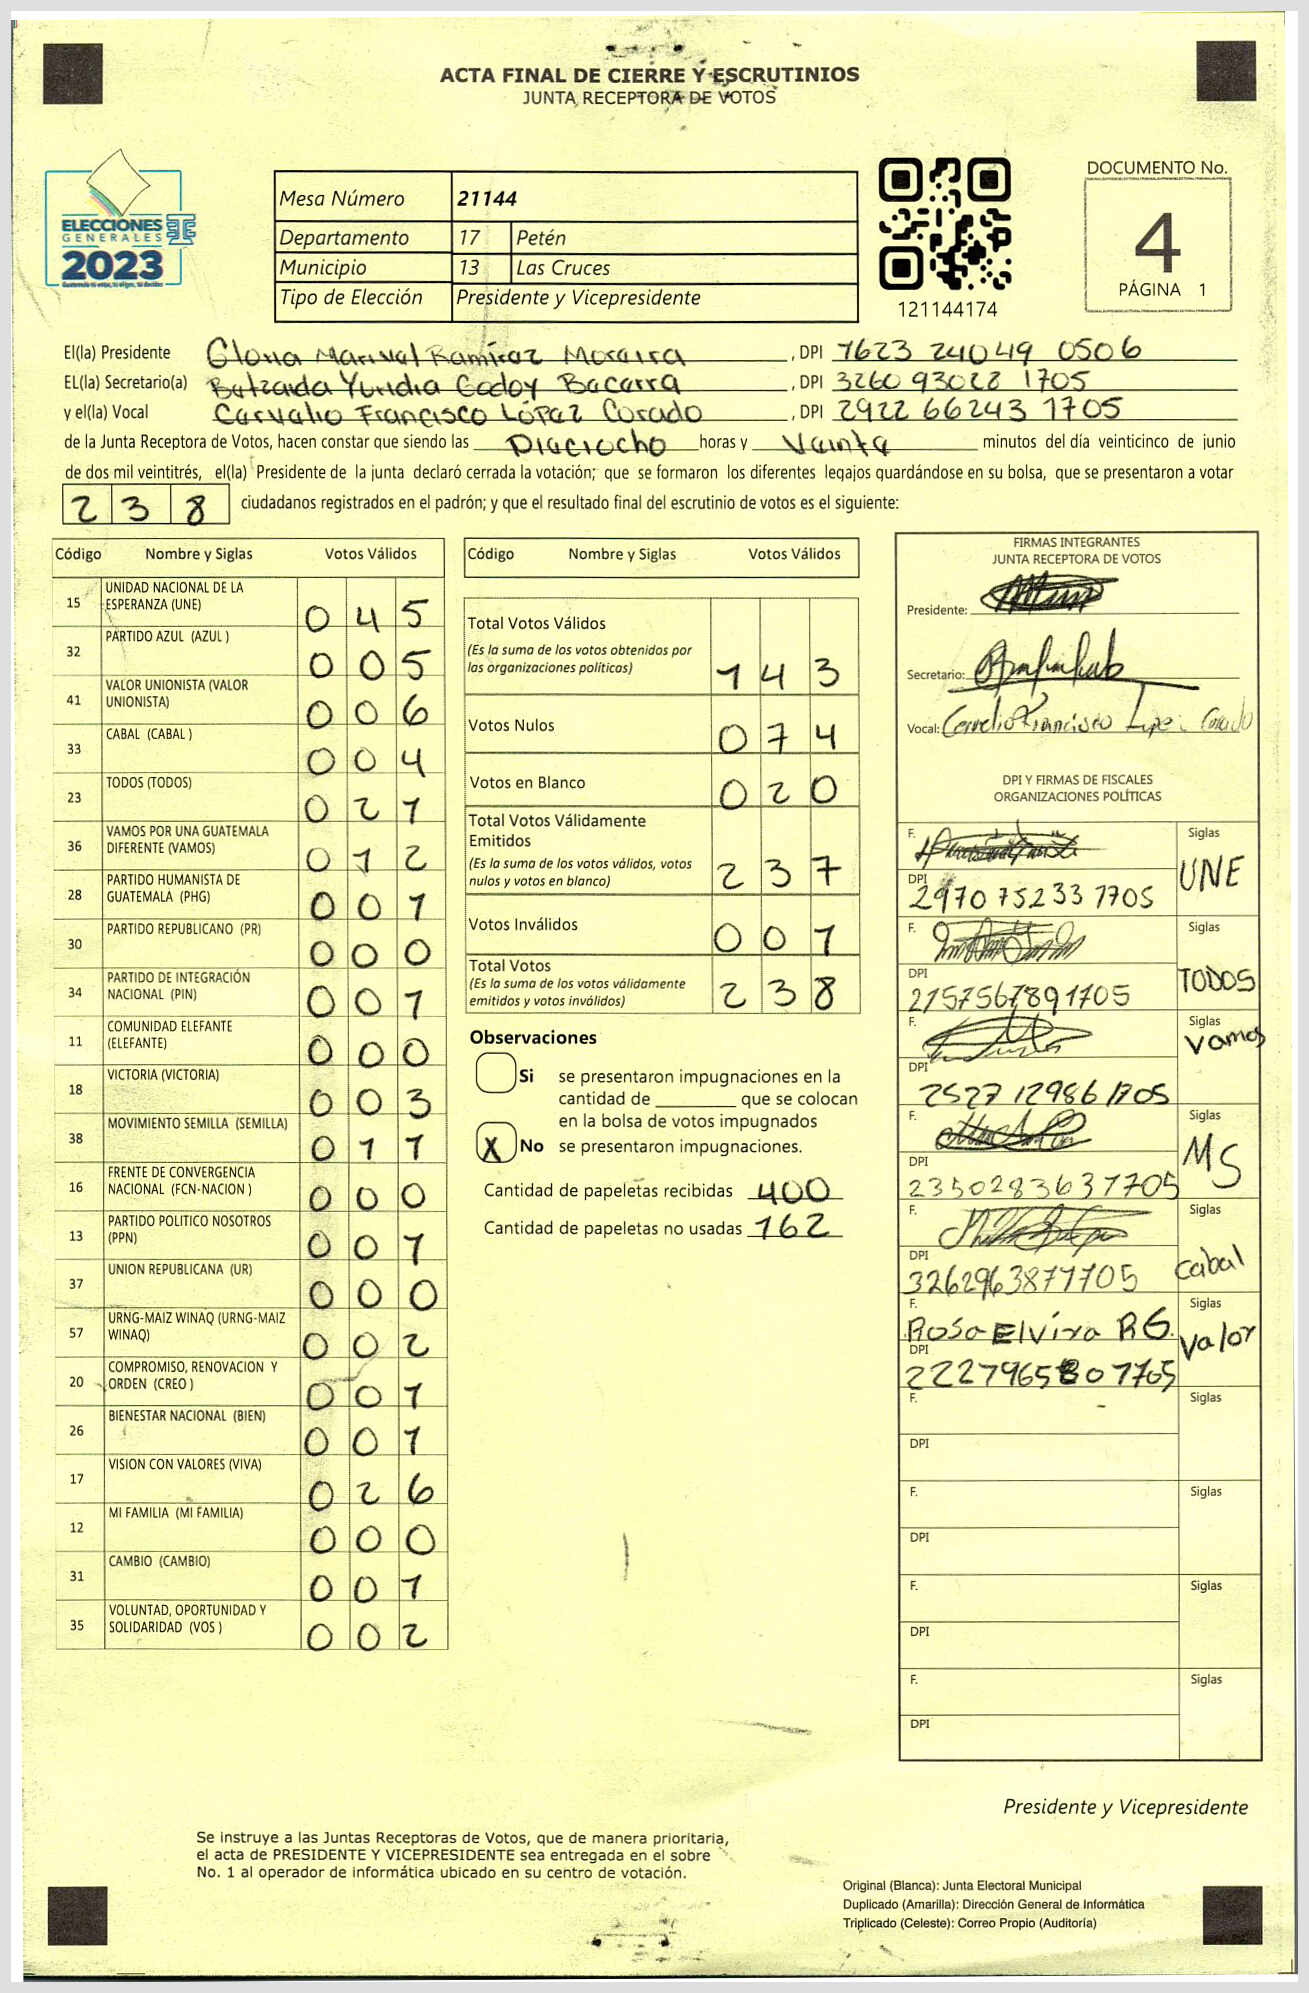 ACTA FINAL DE CIERRE Y ESCRUTINIOS
JUNTA RECEPTORA DE VOTOS
ELECCIONES
GENERALES
2023
Mesa Número 21144
Departamento 17 Petén
Municipio 13 Las Cruces
Tipo de Elección Presidente y Vicepresidente
121144174
DOCUMENTO No.
4
PÁGINA 1
El(la) Presidente Gloria Marival Ramíraz Moraira, DPI 1623 24049 0506
EL(la) Secretario(a) Batzaida Yuridia Godoy Bacarra, DPI 3260 93028 1705
y el(la) Vocal Carvalio Francisco López Corado, DPI 2922 66243 1705
de la Junta Receptora de Votos, hacen constar que siendo las Diaciocho horas y Vainta minutos del día veinticinco de junio
de dos mil veintitrés, el(la) Presidente de la junta declaró cerrada la votación; que se formaron los diferentes legajos quardándose en su bolsa, que se presentaron a votar
238 ciudadanos registrados en el padrón; y que el resultado final del escrutinio de votos es el siguiente:
Código Nombre y Siglas Votos Válidos
15 UNIDAD NACIONAL DE LA ESPERANZA (UNE) 045
32 PARTIDO AZUL (AZUL ) 005
41 VALOR UNIONISTA (VALOR UNIONISTA) 006
33 CABAL (CABAL ) 004
23 TODOS (TODOS) 021
36 VAMOS POR UNA GUATEMALA DIFERENTE (VAMOS) 012
28 PARTIDO HUMANISTA DE GUATEMALA (PHG) 001
30 PARTIDO REPUBLICANO (PR) 000
34 PARTIDO DE INTEGRACIÓN NACIONAL (PIN) 001
11 COMUNIDAD ELEFANTE (ELEFANTE) 000
18 VICTORIA (VICTORIA) 003
38 MOVIMIENTO SEMILLA (SEMILLA) 011
16 FRENTE DE CONVERGENCIA NACIONAL (FCN-NACION ) 000
13 PARTIDO POLITICO NOSOTROS (PPN) 001
37 UNION REPUBLICANA (UR) 000
57 URNG-MAIZ WINAQ (URNG-MAIZ WINAQ) 002
20 COMPROMISO, RENOVACION Y ORDEN (CREO ) 001
26 BIENESTAR NACIONAL (BIEN) 001
17 VISION CON VALORES (VIVA) 026
12 MI FAMILIA (MI FAMILIA) 000
31 CAMBIO (CAMBIO) 001
35 VOLUNTAD, OPORTUNIDAD Y SOLIDARIDAD (VOS ) 002
Código Nombre y Siglas Votos Válidos
Total Votos Válidos
(Es la suma de los votos obtenidos por
las organizaciones políticas) 143
Votos Nulos 074
Votos en Blanco 020
Total Votos Válidamente
Emitidos
(Es la suma de los votos válidos, votos
nulos y votos en blanco) 237
Votos Inválidos 001
Total Votos
(Es la suma de los votos válidamente
emitidos y votos inválidos) 238
Observaciones
Si se presentaron impugnaciones en la
cantidad de ________ que se colocan
en la bolsa de votos impugnados
X No se presentaron impugnaciones.
Cantidad de papeletas recibidas 400
Cantidad de papeletas no usadas 162
FIRMAS INTEGRANTES
JUNTA RECEPTORA DE VOTOS
Presidente:
Secretario:
Vocal:
DPI Y FIRMAS DE FISCALES
ORGANIZACIONES POLÍTICAS
F. Siglas
DPI 2970 75233 1705 UNE
F. Siglas
DPI 2157567891705 TODOS
F. Siglas
DPI 2527 12986 1705 Vamos
F. Siglas
DPI 2350283631705 MS
F. Siglas
DPI 3262963871705 Cabal
F. Rosa Elvira RG. Siglas
DPI 2227965801705 Valor
F. Siglas
DPI
F. Siglas
DPI
F. Siglas
DPI
F. Siglas
DPI
Presidente y Vicepresidente
Se instruye a las Juntas Receptoras de Votos, que de manera prioritaria,
el acta de PRESIDENTE Y VICEPRESIDENTE sea entregada en el sobre
No. 1 al operador de informática ubicado en su centro de votación.
Original (Blanca): Junta Electoral Municipal
Duplicado (Amarilla): Dirección General de Informática
Triplicado (Celeste): Correo Propio (Auditoría)